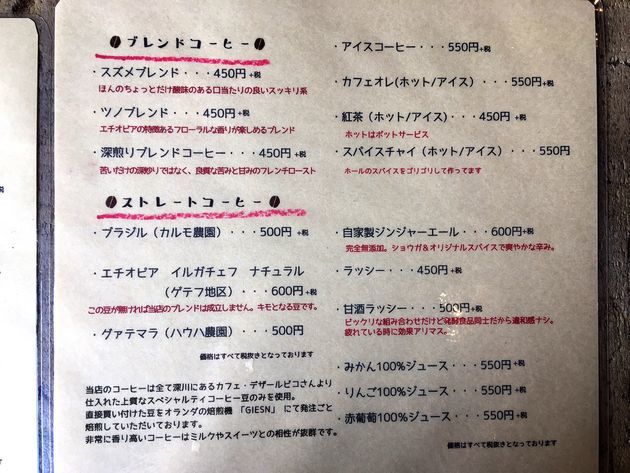 ブレンドコーヒー
・スズメブレンド・・・450円+税
ほんのちょっとだけ酸味のある口当たりの良いスッキリ系
・ツノブレンド・・・450円+税
エチオピアの特徴あるフローラルな香りが楽しめるブレンド
・深煎りブレンドコーヒー・・・450円+税
苦いだけの深炒りではなく、良質な苦みと甘みのフレンチロースト
ストレートコーヒー
・ブラジル(カルモ農園)・・・500円
・エチオピア　イルガチェフ　ナチュラル
(ゲテフ地区)・・・600円+税
この豆が無ければ当店のブレンドは成立しません。キモとなる豆です。
・グァテマラ(ハウハ農園)・・・500円
価格はすべて税抜きとなっております
当店のコーヒーは全て深川にあるカフェ・デザールピコさんより
仕入れた上質なスペシャルティコーヒー豆のみを使用。
直接買い付けた豆をオランダの焙煎機　「GIESN」　にて発注ごと
焙煎していただいております。
非常に香り高いコーヒーはミルクやスイーツとの相性が抜群です。
・アイスコーヒー・・・550円+税
・カフェオレ(ホット/アイス)・・・550円+税
・紅茶(ホット/アイス)・・・450円+税
ホットはポットサービス
・スパイスチャイ(ホット/アイス)・・・550円
ホールのスパイスをゴリゴリして作ってます
・自家製ジンジャーエール・・・600円+税
完全無添加。ショウガ&オリジナルスパイスで爽やかな辛み。
・ラッシー・・・450円+税
・甘酒ラッシー・・・500円+税
ビックリな組み合わせだけど発酵食品同士だから違和感ナシ。
疲れている時に効果アリマス。
・みかん100%ジュース・・・550円+税
・りんご100%ジュース・・・550円+税
・赤葡萄100%ジュース・・・550円+税
価格はすべて税抜きとなっております